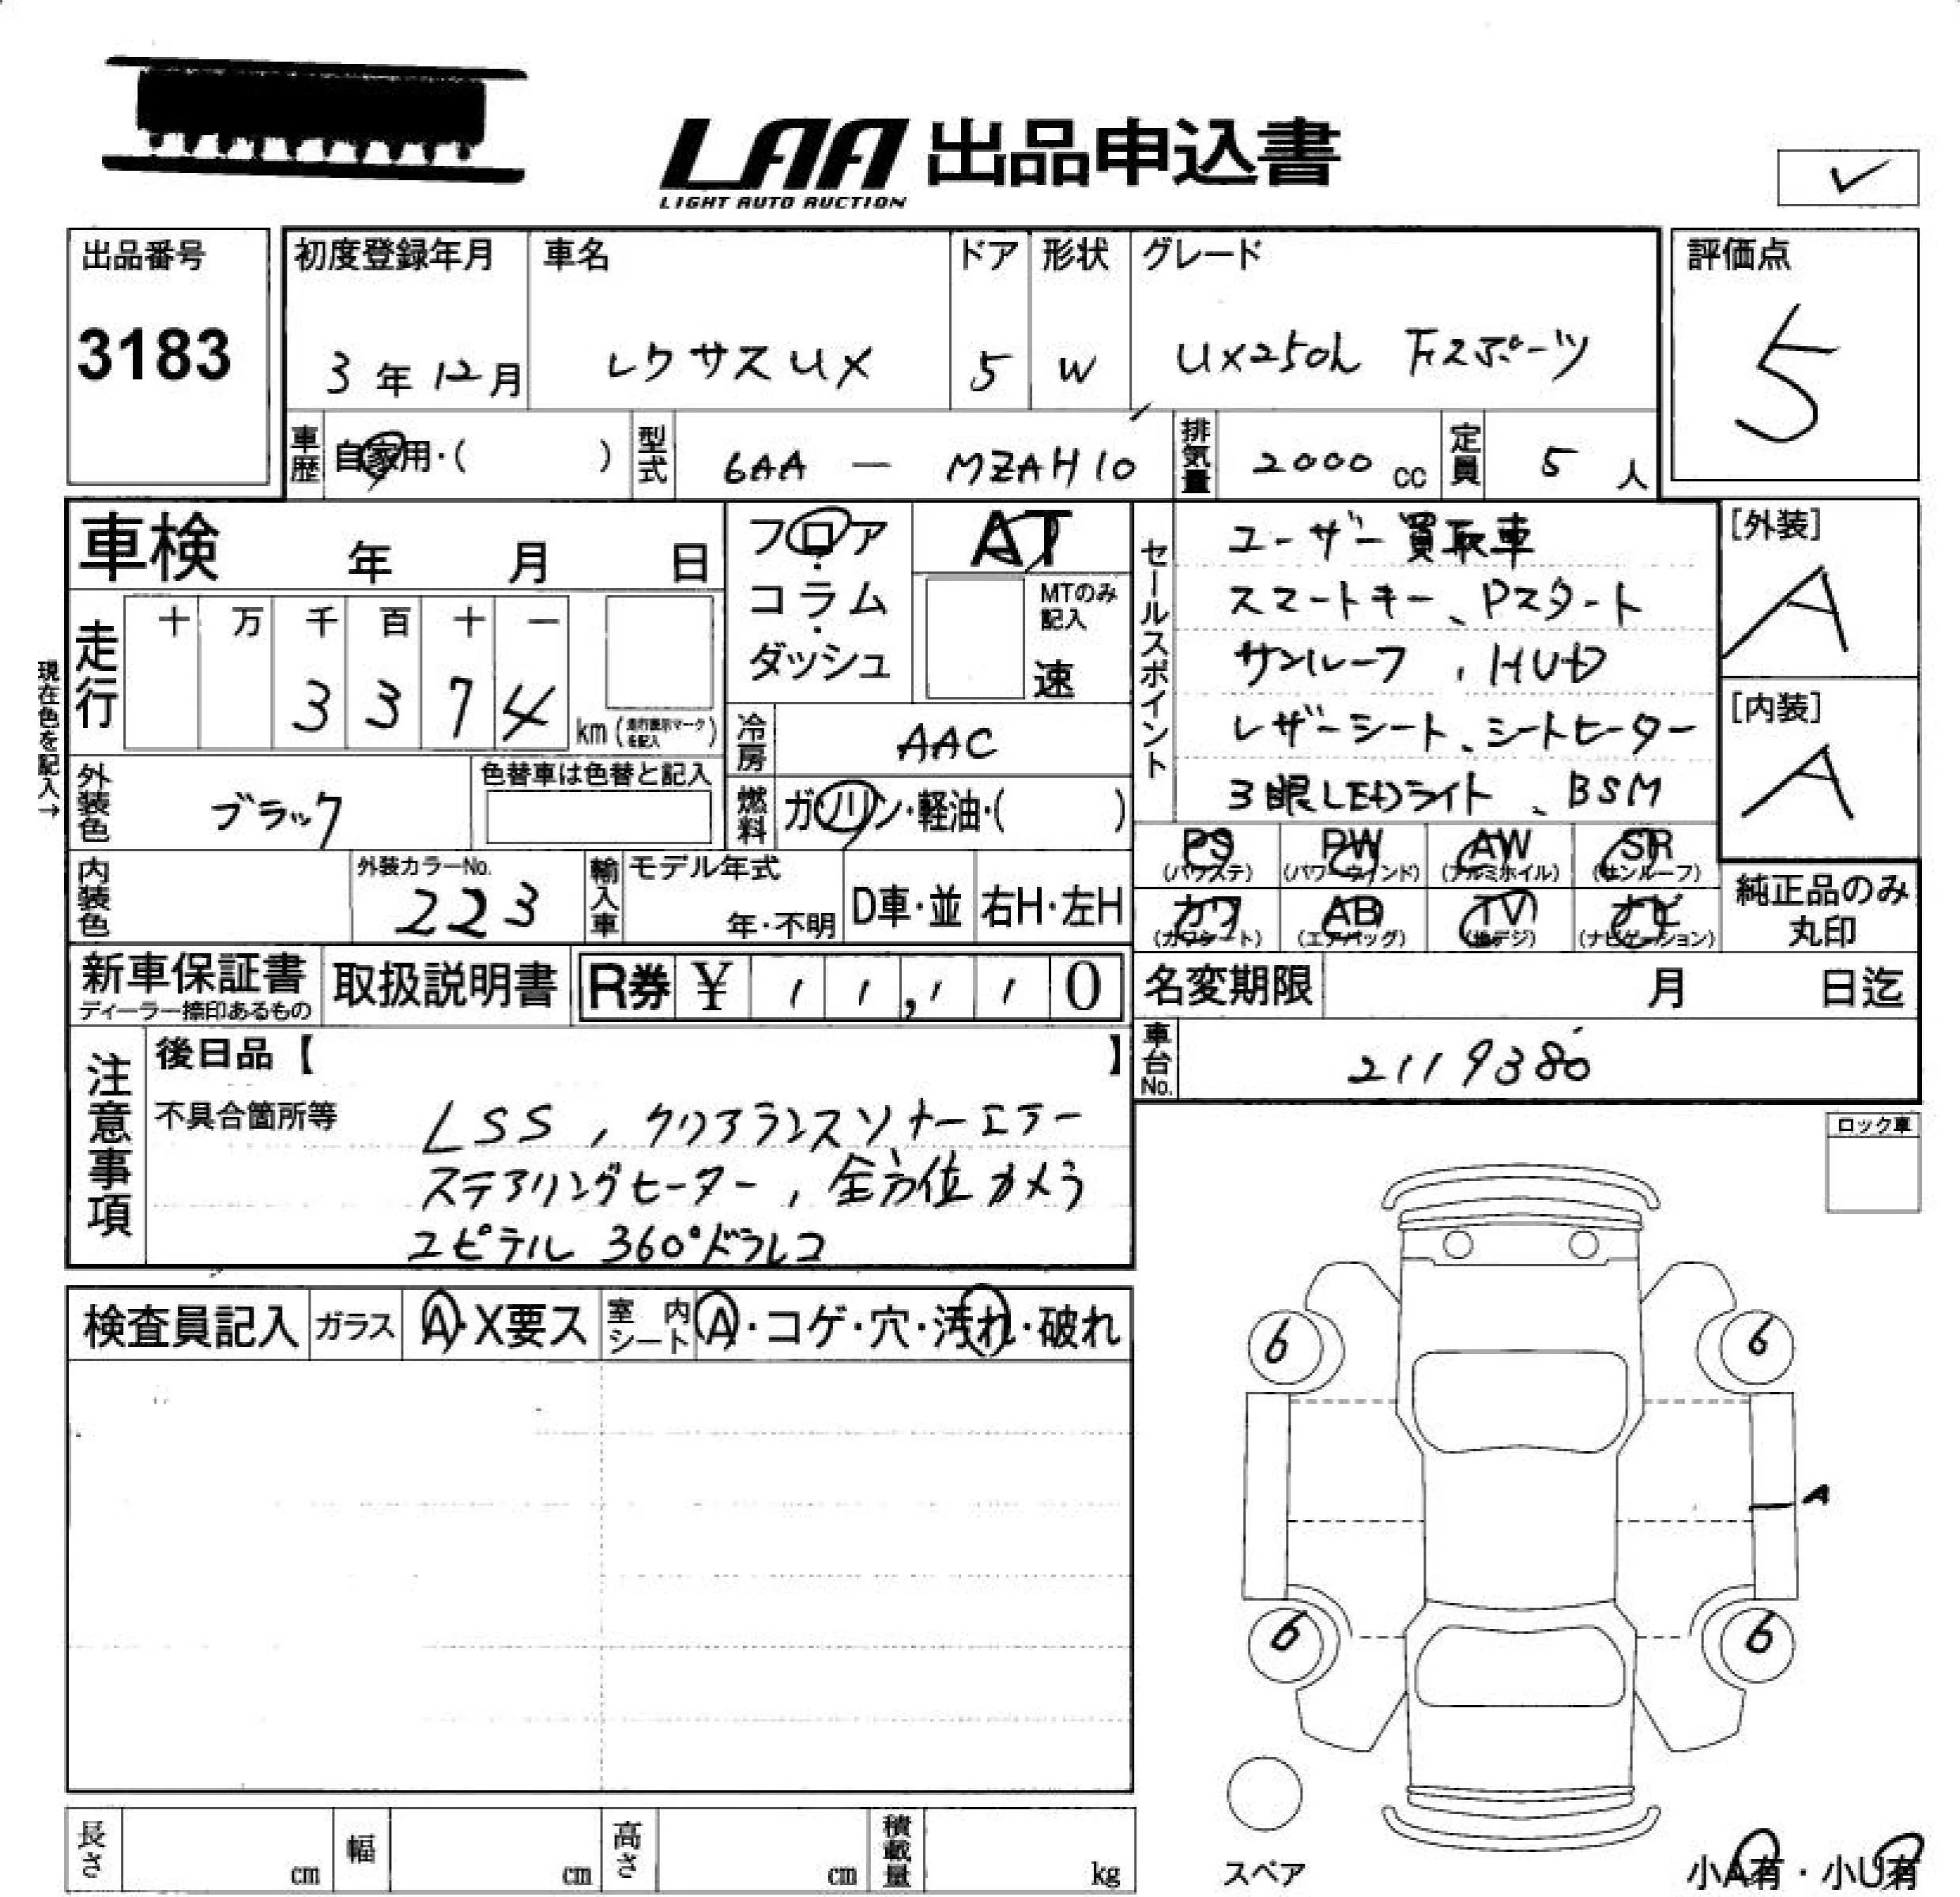 LAA 出品申込書
LIGHT AUTO AUCTION
出品番号
3183
初度登録年月
3年12月
車名
レクサスUX
ドア
5
形状
W
グレード
UX250h Fスポーツ
評価点
5
車歴
自家用・( )
型式
6AA — MZAH10
排気量
2000 cc
定員
5 人
車検 年 月 日
フロア・
コラム・
ダッシュ
AT
MTのみ
記入
速
セールスポイント
ユーザー買取車
スマートキー、Pスタート
サンルーフ、HUD
レザーシート、シートヒーター
3眼LEDライト、BSM
[外装]
A
[内装]
A
現在色を記入→
走行
十 万 千 百 十 一
3 3 7 4
km(走行表示マークを記入)
冷房
AAC
外装色
ブラック
色替車は色替と記入
燃料
ガソリン・軽油・( )
内装色
外装カラーNo.
223
輸入車
モデル年式
年・不明
D車・並
右H・左H
PS
(パワステ)
PW
(パワーウインド)
AW
(アルミホイル)
SR
(サンルーフ)
カワ
(カワシート)
AB
(エアバッグ)
TV
(地デジ)
ナビ
(ナビゲーション)
純正品のみ
丸印
新車保証書
ディーラー捺印あるもの
取扱説明書
R券 ¥ 11,110
名変期限 月 日迄
車台No.
2119380
注意事項
後日品【 】
不具合箇所等
LSS, クリアランスソナーエラー
ステアリングヒーター, 全方位カメラ
ユピテル 360°ドラレコ
ロック車
検査員記入
ガラス
A・X要ス
室内シート
A・コゲ・穴・汚れ・破れ
6
6
A
6
6
スペア
長さ cm
幅 cm
高さ cm
積載量 kg
小A有・小U有